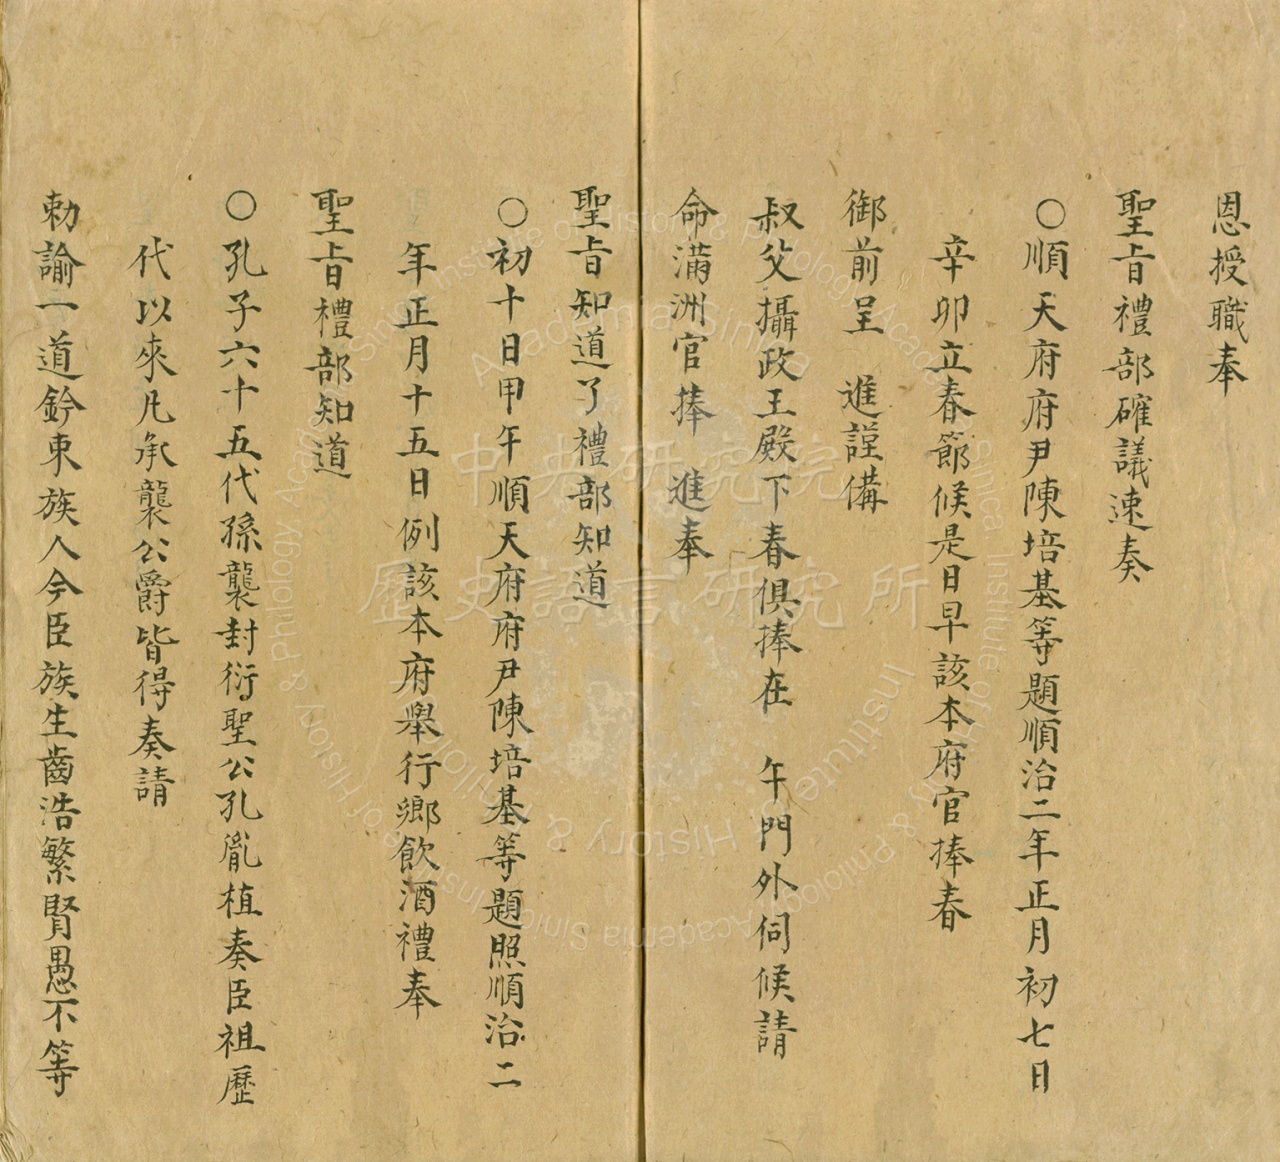 恩授職奉
聖旨禮部確議速奏
○順天府府尹陳培基等題順治二年正月初七日
辛卯立春節候是日早該本府官捧春
御前呈 進謹備
叔父攝政王殿下春俱捧在 午門外伺候請
命滿洲官捧 進奉
聖旨知道了禮部知道
○初十日甲午順天府府尹陳培基等題照順治二
年正月十五日例該本府舉行鄉飲酒禮奉
聖旨禮部知道
○孔子六十五代孫襲封衍聖公孔胤植奏臣祖歷
代以來凡承襲公爵皆得奏請
勅諭一道鈐束族人今臣族生齒浩繁賢愚不等
中央研究院
歷史語言研究所
Institute of History & Philology Academia Sinica